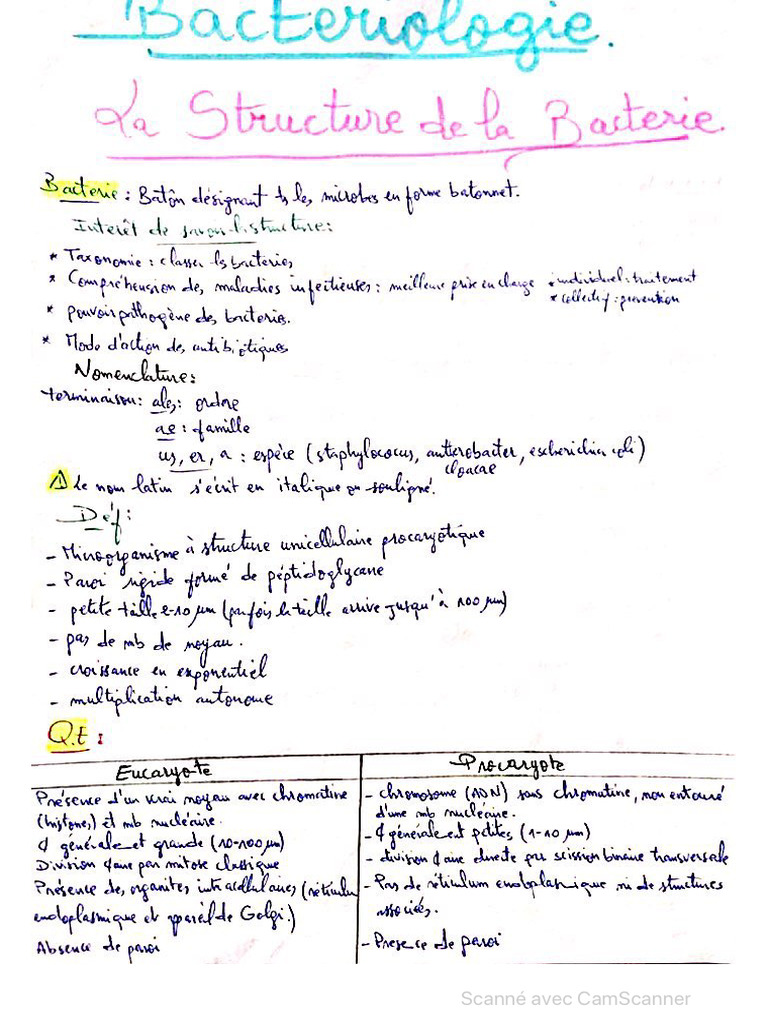 Bacteriologie.
La Structure de la Bacterie.
Bacterie : Batôn désignant ts les microbes en forme batonnet.
Interêt de savoir la structure :
* Taxonomie : classer les bacteries
* Compréhension des maladies infectieuses : meilleure prise en charge * individuel : traitement
* collectif : prevention
* pouvoir pathogène des bacteries.
* Mode d'action des antibiotiques
Nomenclature :
terminaison : ales : ordre
ae : famille
us, er, a : espèce (staphylococus, anterobacter, escherichia coli)
cloacae
⚠ Le nom latin s'écrit en italique ou souligné.
Déf :
- Microorganisme à structure unicellulaire procaryotique
- Paroi rigide formé de péptidoglycane
- petite taille 2-10 µm (parfois la taille arrive jusqu'à 100 µm)
- pas de mb de noyau.
- croissance en exponentiel
- multiplication autonome
Q.E :
Eucaryote
Présence d'un vrai noyau avec chromatine
(histones) et mb nucléaire.
¢ générale et grande (10-100 µm)
Division ¢aire par mitose classique
Présence des organites intracellulaires (réticulum
endoplasmique et appareil de Golgi.)
Absence de paroi
Procaryote
- chromosome (ADN) sans chromatine, non entouré
d'une mb nucléaire.
- ¢ générale et petites (1-10 µm)
- division ¢aire directe par scission binaire transversale
- Pas de réticulum endoplasmique ni de structures
associées.
- Presence de paroi
Scanné avec CamScanner